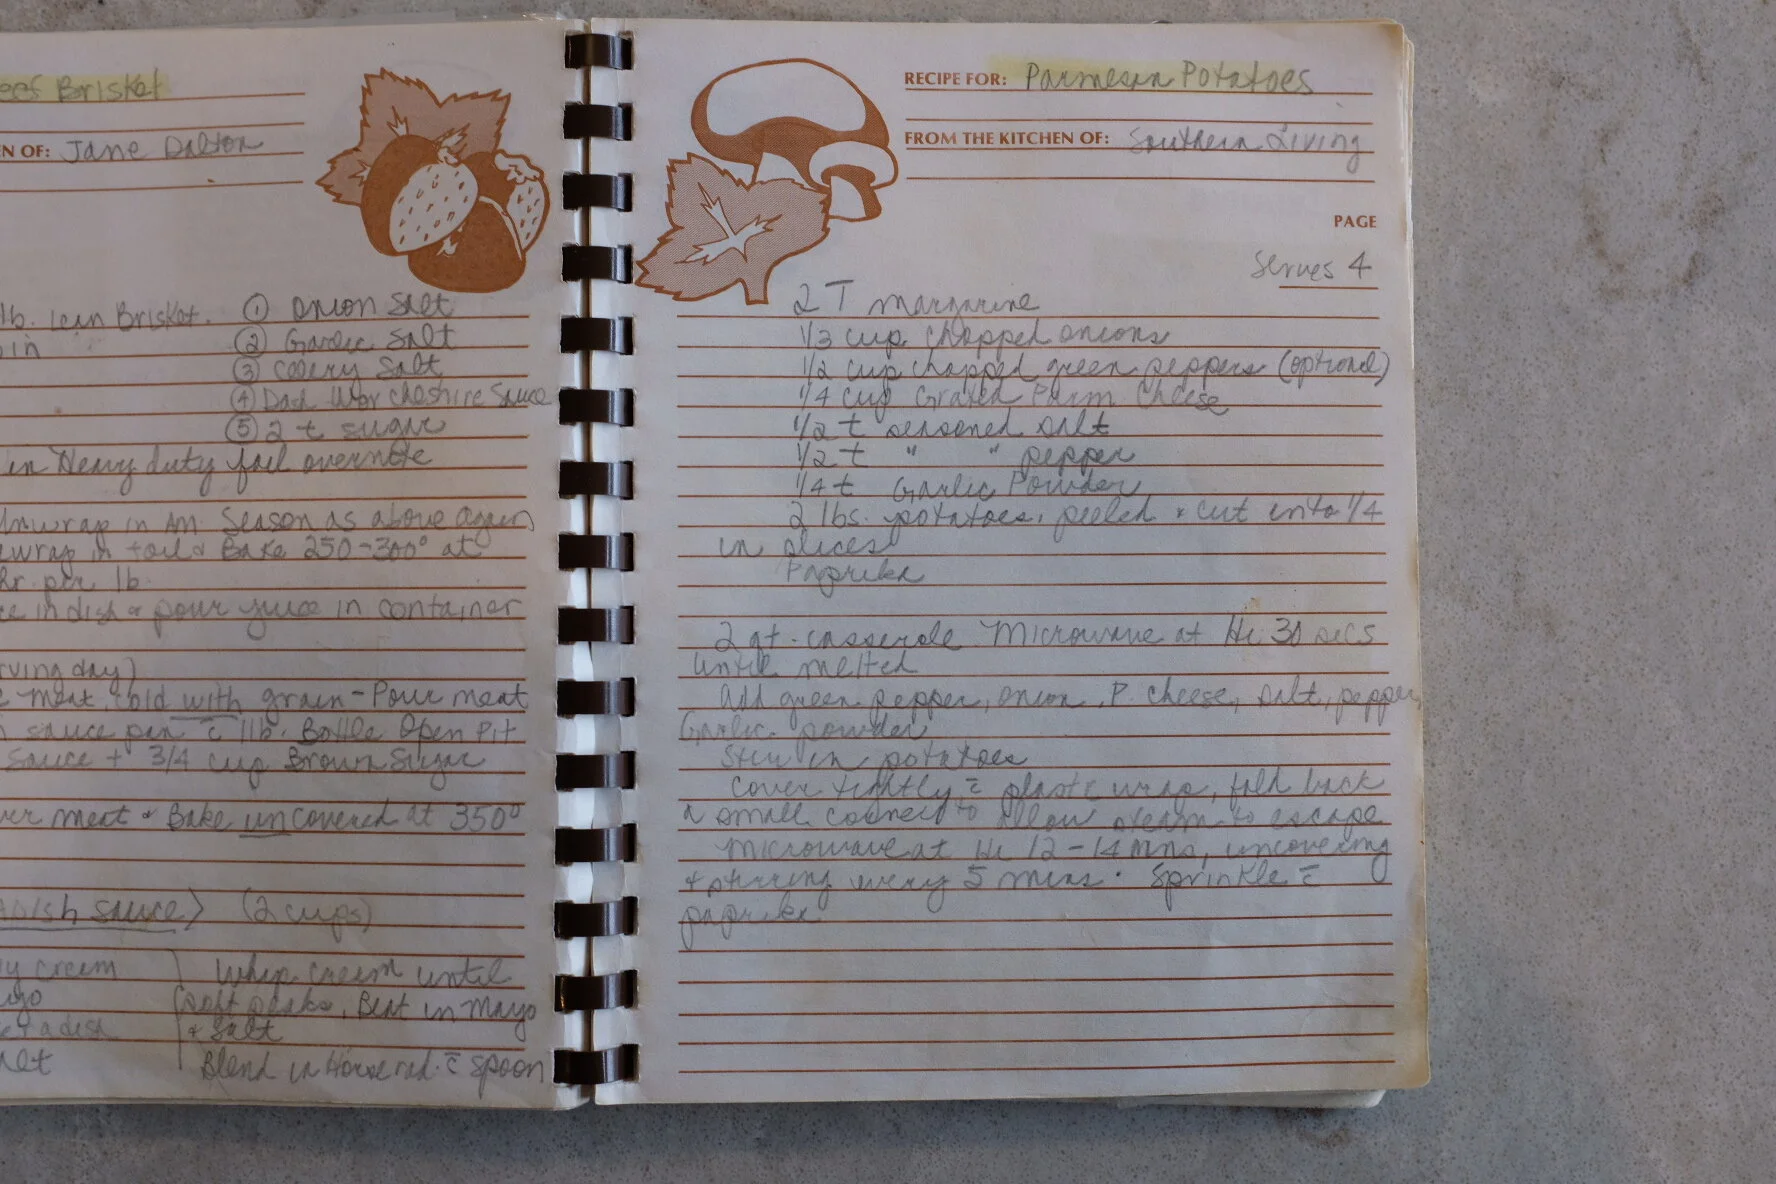 eef Brisket
EN OF: Jane Dalton
lb. lean Brisket. ① Onion Salt
② Garlic Salt
③ Celery Salt
④ Dash Worcheshire Sauce
⑤ 2 t sugar
in Heavy duty foil overnite
Unwrap in Am. Season as above again
ewrap in foil & Bake 250-300° at
hr. per lb.
ce in dish & pour juice in container
rving day)
meat cold with grain - Pour meat
sauce pan c̄ 1lb. Bottle Open Pit
Sauce + 3/4 cup Brown Sugar
ur meat & Bake uncovered at 350°
adish sauce) (2 cups)
y cream
ayo
eradish
alt
Whip cream until
soft peaks, Beat in Mayo
& Salt
Blend in Horserad. c̄ spoon
RECIPE FOR: Parmesan Potatoes
FROM THE KITCHEN OF: Southern Living
PAGE
Serves 4
2 T margarine
1/3 cup chopped onions
1/2 cup chopped green peppers (optional)
1/4 cup Grated Parm Cheese
1/2 t seasoned salt
1/2 t " " pepper
1/4 t Garlic Powder
2 lbs. potatoes, peeled & cut into 1/4
in slices
Paprika
2 qt. casserole. Microwave at Hi 30 secs
until melted
Add green pepper, onion, P. cheese, salt, pepper,
Garlic powder
Stir in potatoes
Cover tightly c̄ plastic wrap, fold back
a small corner to allow steam to escape
Microwave at Hi 12-14 mns, uncovering
& stirring every 5 mins. Sprinkle c̄
paprika